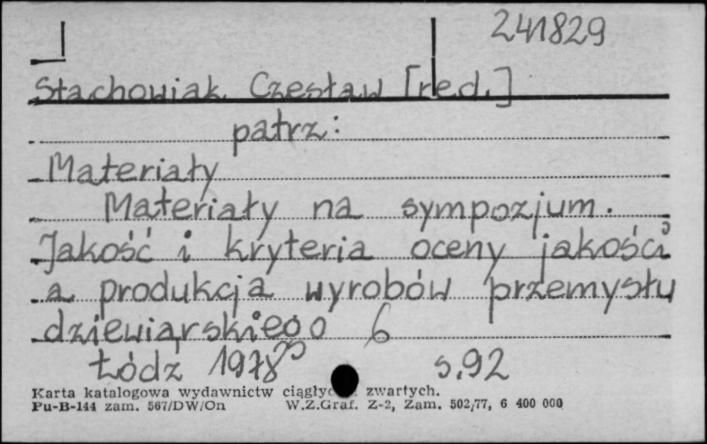 241829
Stachowiak Czesław [red.]
patrz:
Materiały
Materiały na sympozjum.
Jakość i kryteria oceny jakości
a produkcja wyrobów przemysłu
dziewiarskiego
Łódź 1978 s.92
Karta katalogowa wydawnictw zwartych.
Pu-B-144 zam. 567/DW/On W.Z.Graf. Z-2, Zam. 502/77, 6 400 000